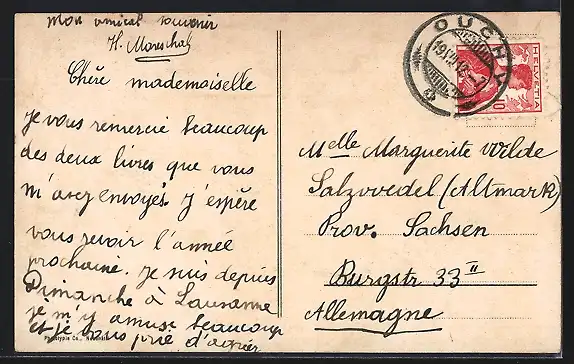 Mon amical souvenir
H. Mareschal
Chère mademoiselle
je vous remercie beaucoup
des deux livres que vous
m'avez envoyés. J'éspère
vous revoir l'année
prochaine. je suis depuis
Dimanche à Lausanne
je m'y amuse beaucoup
et je vous prie d'agréer
Phototypie Co., Neuchâtel
OUCHY
HELVETIA
10
Melle Marguerite Wilde
Salzwedel (Altmark)
Prov. Sachsen
Burgstr 33 II
Allemagne